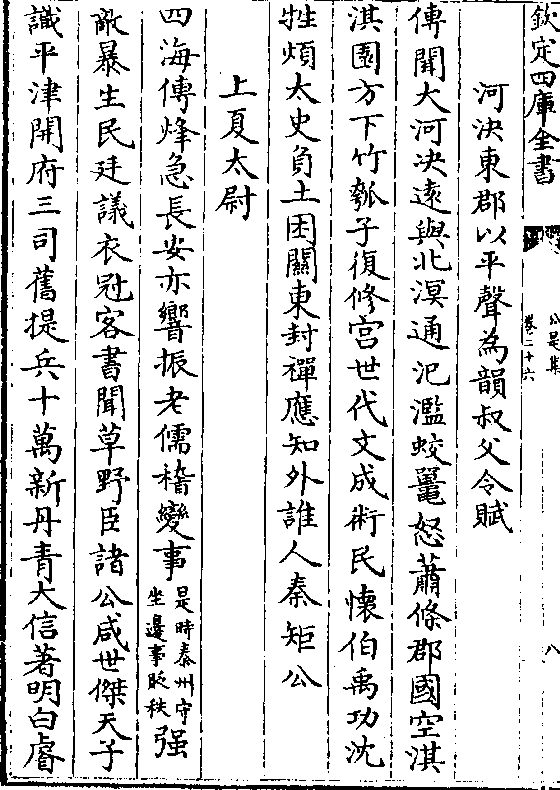 欽定四庫全書
公是集
卷二十六
八
河決東郡以平聲為韻叔父令賦
傳聞大河決遠與北溟通氾濫蛟鼉怒蕭條郡國空淇
淇園方下竹瓠子復修宫世代文成術民懷伯禹功沈
牲煩太史負土困關東封禪應知外誰人秦矩公
上夏太尉
四海傳烽急長安亦響振老儒稽變事是時秦州守坐邊事貶秩强
敵暴生民廷議衣冠客書聞草野臣諸公咸世傑天子
識平津開府三司舊提兵十萬新丹青大信著明白睿